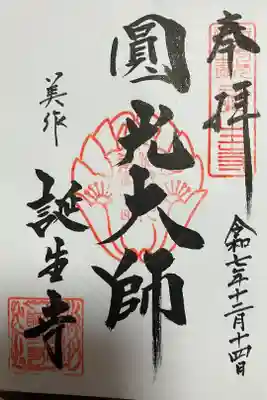 奉拝
令和七年十二月十四日
圓光大師
美作
誕生寺